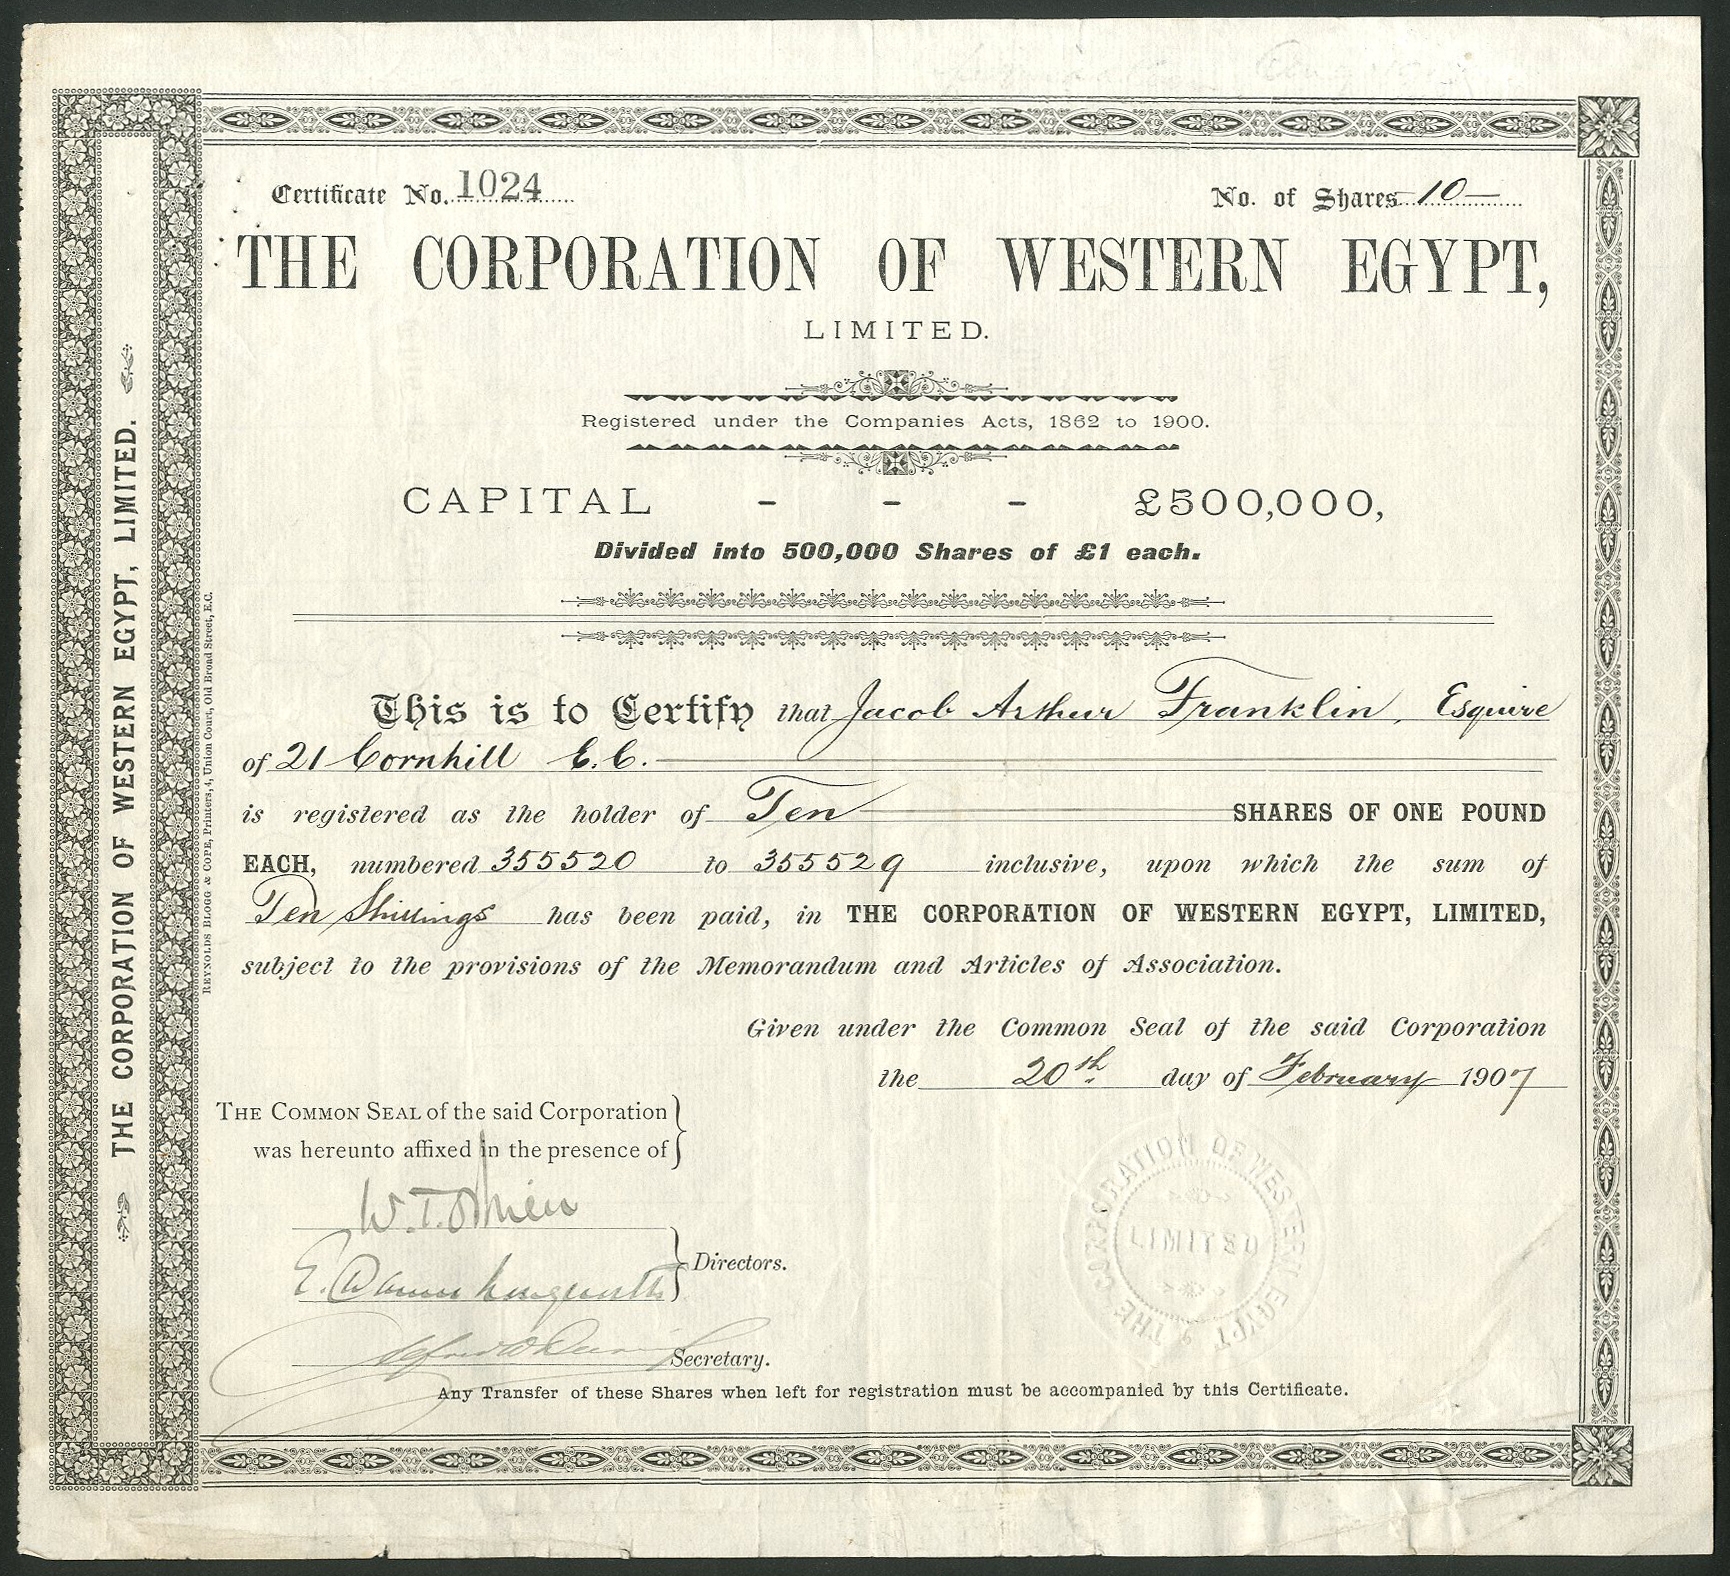 Certificate No. 1024
No. of Shares 10
THE CORPORATION OF WESTERN EGYPT,
LIMITED.
Registered under the Companies Acts, 1862 to 1900.
CAPITAL - - - £500,000,
Divided into 500,000 Shares of £1 each.
This is to Certify that Jacob Arthur Franklin, Esquire
of 21 Cornhill E.C.
is registered as the holder of Ten SHARES OF ONE POUND
EACH, numbered 355520 to 355529 inclusive, upon which the sum of
Ten Shillings has been paid, in THE CORPORATION OF WESTERN EGYPT, LIMITED,
subject to the provisions of the Memorandum and Articles of Association.
Given under the Common Seal of the said Corporation
the 20th day of February 1907
THE COMMON SEAL of the said Corporation
was hereunto affixed in the presence of
W.T.
E.
Directors.
Secretary.
Any Transfer of these Shares when left for registration must be accompanied by this Certificate.
THE CORPORATION OF WESTERN EGYPT
LIMITED
THE CORPORATION OF WESTERN EGYPT, LIMITED.
REYNOLDS BLOGG & COPE, Printers, 4, Union Court, Old Broad Street, E.C.